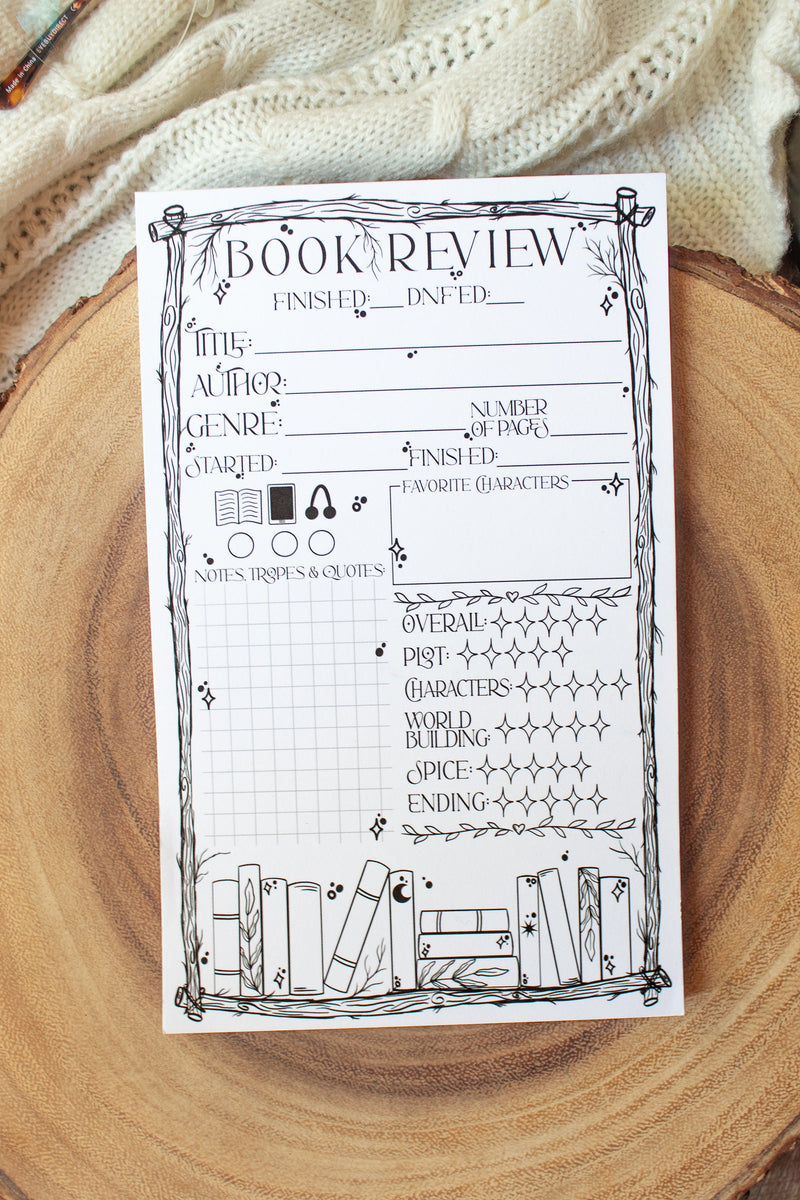 Made in China | EYEBUYDIRECT
BOOK REVIEW
FINISHED:___ DNF'ED:___
TITLE:
AUTHOR:
GENRE:
NUMBER
OF PAGES
STARTED:
FINISHED:
FAVORITE CHARACTERS
NOTES, TROPES & QUOTES:
OVERALL:
PLOT:
CHARACTERS:
WORLD
BUILDING:
SPICE:
ENDING: